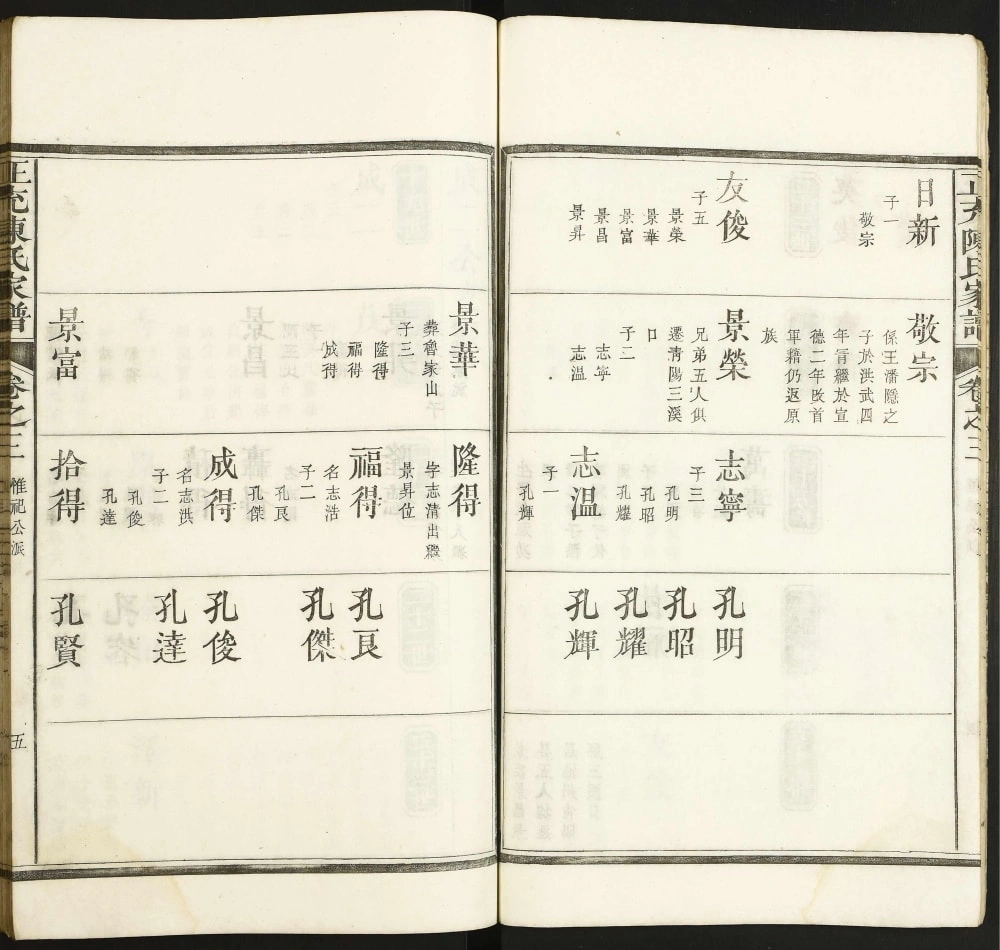 日新
子一
敬宗
友俊
子五
景榮
景華
景富
景昌
景昇
敬宗
係王潘隱之
子於洪武四
年旨繼於宣
德二年改首
軍籍仍返原
族
景榮
兄弟五人俱
遷淸陽三溪
口
子二
志寧
志温
志寧
子三
孔明
孔昭
孔耀
志温
子一
孔輝
孔明
孔昭
孔耀
孔輝
景華
葬魯家山
子三
隆得
福得
成得
景富
隆得
字志清出繼
景昇位
福得
名志浩
子二
孔良
孔傑
成得
名志洪
子二
孔俊
孔達
拾得
孔良
孔傑
孔俊
孔達
孔賢
陳氏家譜
卷之三
惟祀公派
五